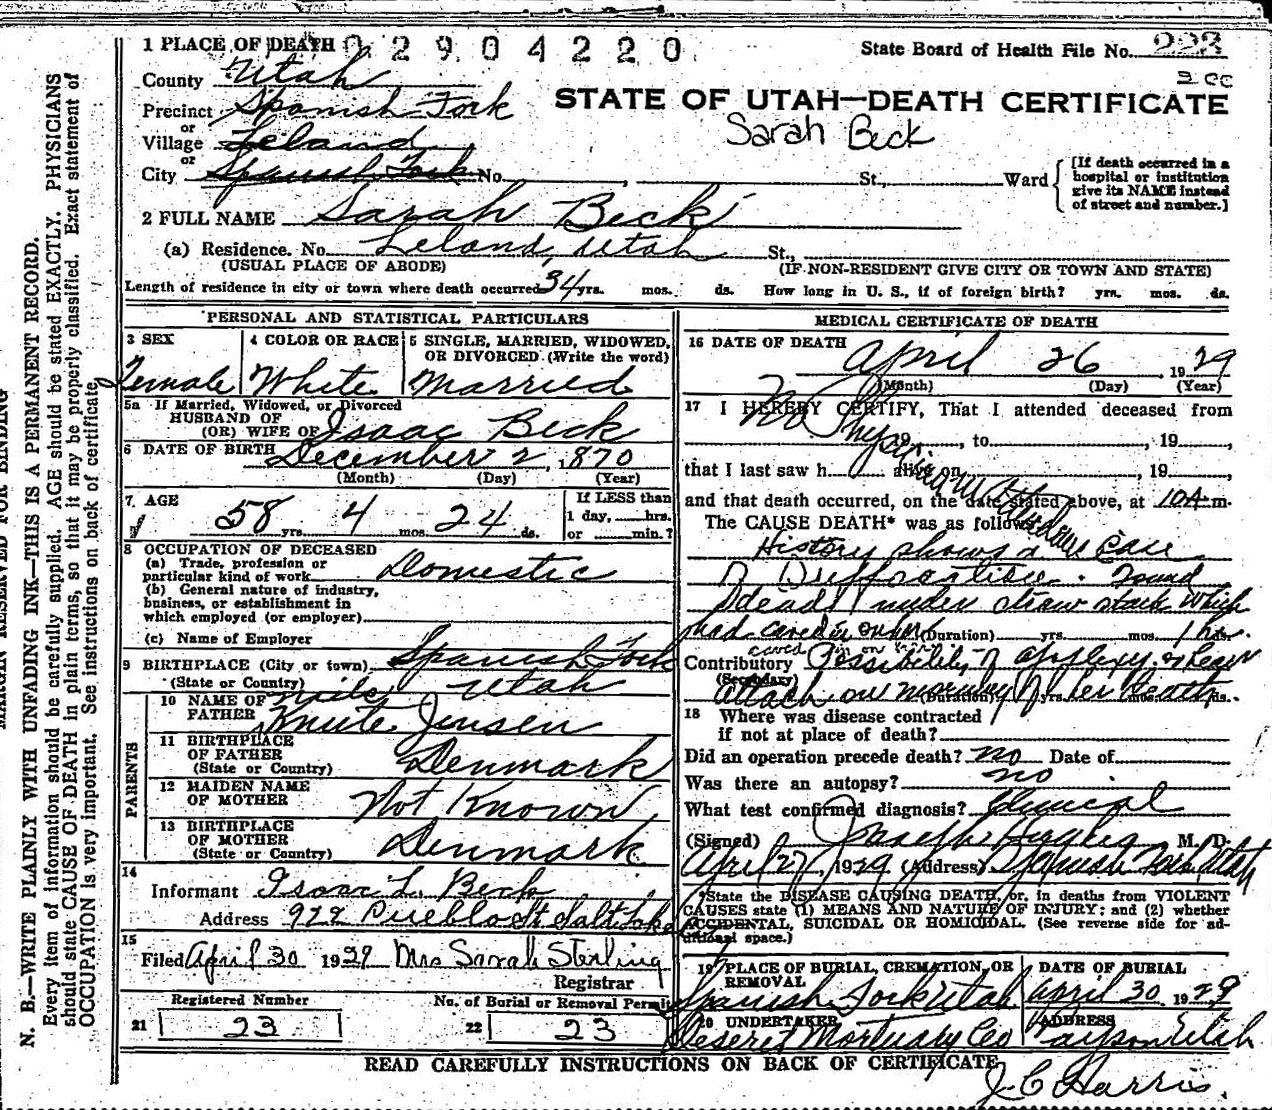 1 PLACE OF DEATH 02904220
State Board of Health File No. 223
County Utah
Precinct Spanish Fork
or
Village Leland
or
City Spanish Fork No. , St., Ward
STATE OF UTAH—DEATH CERTIFICATE
Sarah Beck
[If death occurred in a hospital or institution give its NAME instead of street and number.]
2 FULL NAME Sarah Beck
(a) Residence. No. Leland, Utah St.,
(USUAL PLACE OF ABODE) (IF NON-RESIDENT GIVE CITY OR TOWN AND STATE)
Length of residence in city or town where death occurred 34 yrs. mos. ds. How long in U. S., if of foreign birth? yrs. mos. ds.
PERSONAL AND STATISTICAL PARTICULARS
3 SEX
Female
4 COLOR OR RACE
White
5 SINGLE, MARRIED, WIDOWED, OR DIVORCED (Write the word)
Married
5a If Married, Widowed, or Divorced
HUSBAND OF
(OR) WIFE OF Isaac Beck
6 DATE OF BIRTH December 2, 1870
(Month) (Day) (Year)
7. AGE
58 yrs. 4 mos. 24 ds.
If LESS than
1 day, hrs.
or min.?
8 OCCUPATION OF DECEASED
(a) Trade, profession or
particular kind of work Domestic
(b) General nature of industry,
business, or establishment in
which employed (or employer)
(c) Name of Employer
9 BIRTHPLACE (City or town) Spanish Fork
(State or Country) Utah
PARENTS
10 NAME OF FATHER Niels Knute Jensen
11 BIRTHPLACE
OF FATHER
(State or Country) Denmark
12 MAIDEN NAME
OF MOTHER Not Known
13 BIRTHPLACE
OF MOTHER
(State or Country) Denmark
14
Informant Isaac L. Beck
Address 922 Pueblo St Salt Lake
15
Filed April 30 1929 Mrs Sarah Sterling
Registrar
Registered Number
21 23
No. of Burial or Removal Permit
22 23
MEDICAL CERTIFICATE OF DEATH
16 DATE OF DEATH
April 26 1929
(Month) (Day) (Year)
17 I HEREBY CERTIFY, That I attended deceased from
19 , to , 19 ,
No
that I last saw h alive on , 19 ,
and that death occurred, on the date stated above, at 10 A m.
The CAUSE DEATH* was as follows:
History shows a case
of Suffocation. Found
dead under straw stack which
had caved in on her (Duration) yrs. mos. 1 hr ds.
caved in on her
Contributory Possibility of apoplexy or heart
(Secondary)
attack on morning of her death
(Duration) yrs. mos. ds.
18 Where was disease contracted
if not at place of death?
Did an operation precede death? no Date of
Was there an autopsy? no
What test confirmed diagnosis? Clinical
(Signed) Joseph Hughes M. D.
April 27, 1929 (Address) Spanish Fork Utah
*State the DISEASE CAUSING DEATH, or, in deaths from VIOLENT
CAUSES state (1) MEANS AND NATURE OF INJURY; and (2) whether
ACCIDENTAL, SUICIDAL OR HOMICIDAL. (See reverse side for ad-
ditional space.)
19 PLACE OF BURIAL, CREMATION, OR REMOVAL
Spanish Fork Utah
DATE OF BURIAL
April 30 1929
20 UNDERTAKER
Deseret Mortuary Co
ADDRESS
Payson Utah
READ CAREFULLY INSTRUCTIONS ON BACK OF CERTIFICATE
J C Harris.
MARGIN RESERVED FOR BINDING
N. B.—WRITE PLAINLY WITH UNFADING INK—THIS IS A PERMANENT RECORD.
Every item of information should be carefully supplied. AGE should be stated EXACTLY. PHYSICIANS
should state CAUSE OF DEATH in plain terms, so that it may be properly classified. Exact statement of
OCCUPATION is very important. See instructions on back of certificate.